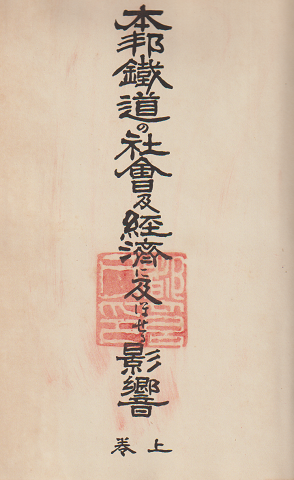 本邦鐵道の社會及經濟に及ぼせる影響
上卷